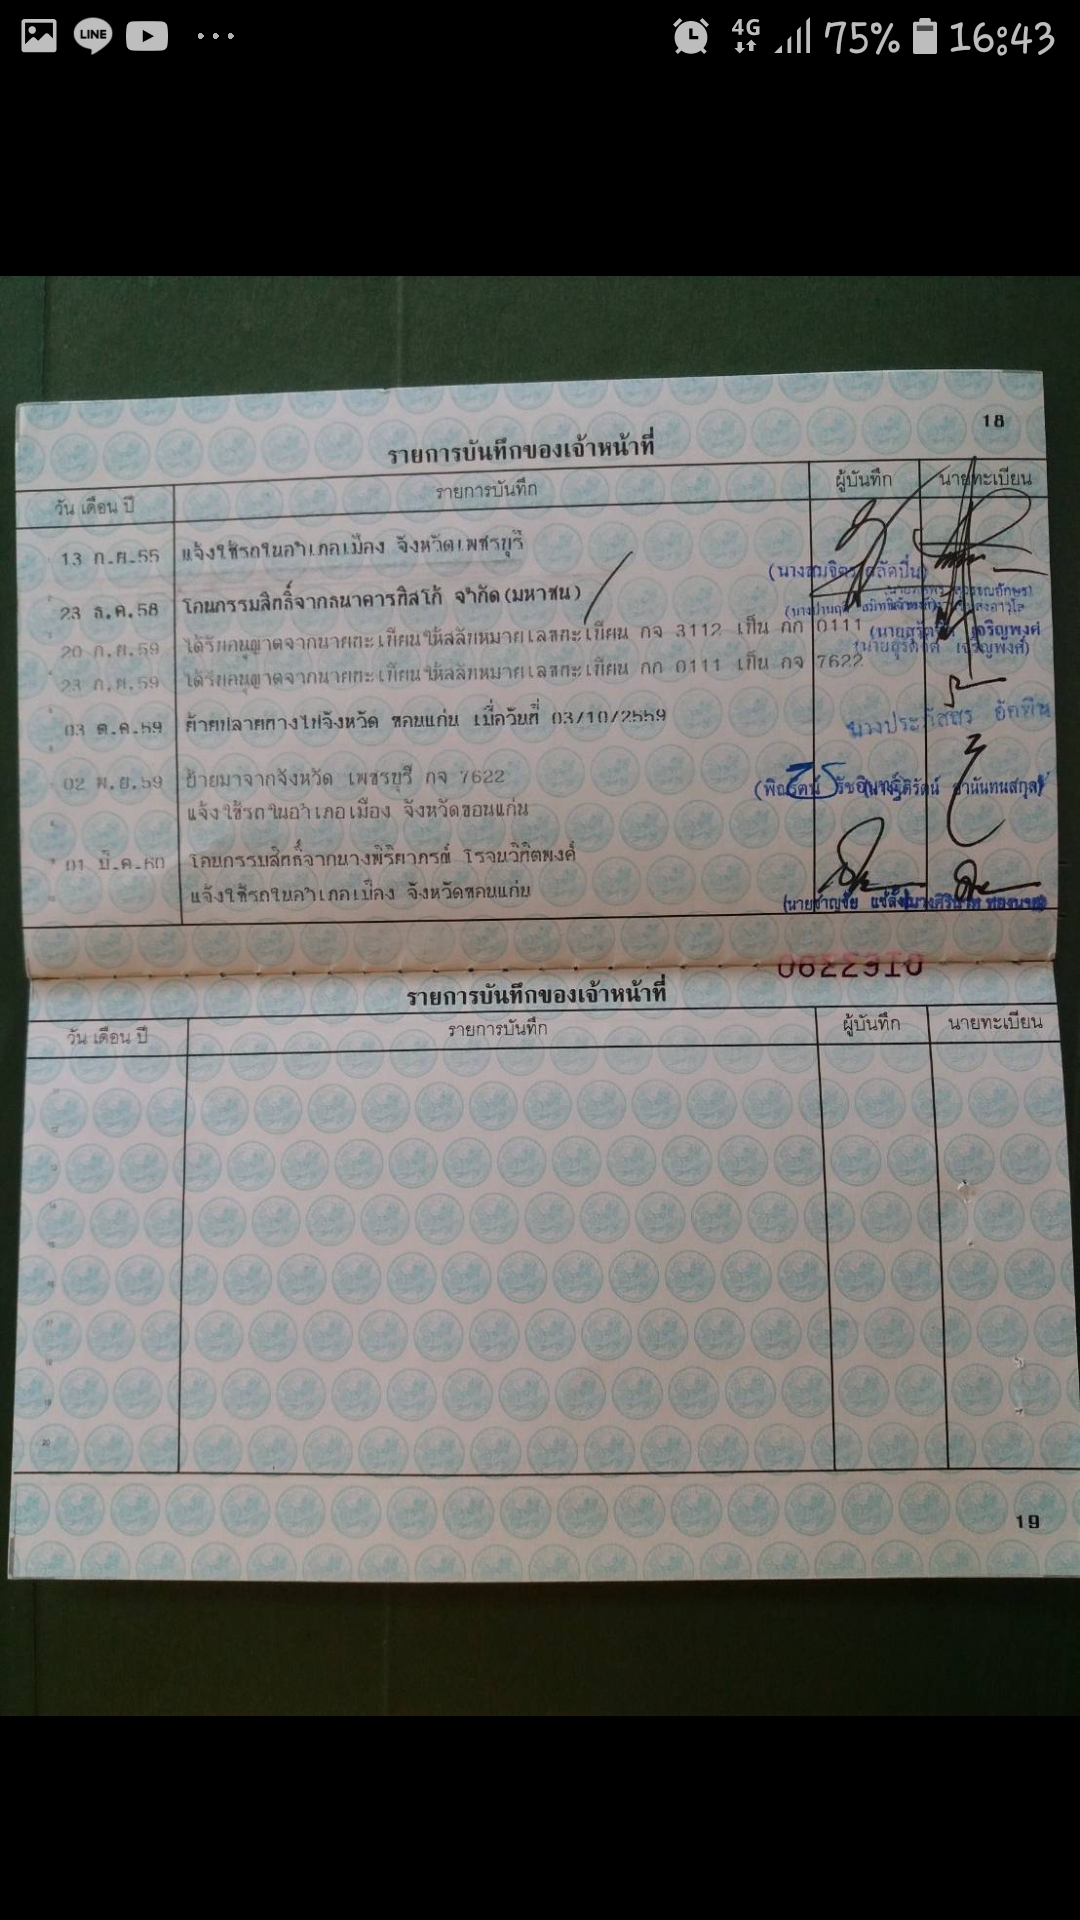 LINE
4G
75%
16:43
18
รายการบันทึกของเจ้าหน้าที่
วัน เดือน ปี รายการบันทึก ผู้บันทึก นายทะเบียน
13 ก.ย.55 แจ้งใช้รถในอำเภอเมือง จังหวัดเพชรบุรี
23 ธ.ค.58 โอนกรรมสิทธิ์จากธนาคารทิสโก้ จำกัด(มหาชน)
20 ก.ย.59 ได้รับอนุญาตจากนายทะเบียนให้สลับหมายเลขทะเบียน กจ 3112 เป็น กก 0111
23 ก.ย.59 ได้รับอนุญาตจากนายทะเบียนให้สลับหมายเลขทะเบียน กก 0111 เป็น กจ 7622
03 ต.ค.59 ย้ายปลายทางไปจังหวัด ขอนแก่น เมื่อวันที่ 03/10/2559
02 พ.ย.59 ย้ายมาจากจังหวัด เพชรบุรี กจ 7622
แจ้งใช้รถในอำเภอเมือง จังหวัดขอนแก่น
01 มี.ค.60 โอนกรรมสิทธิ์จากนางพิริยาภรณ์
แจ้งใช้รถในอำเภอเมือง จังหวัดขอนแก่น
0622910
รายการบันทึกของเจ้าหน้าที่
วัน เดือน ปี รายการบันทึก ผู้บันทึก นายทะเบียน
19